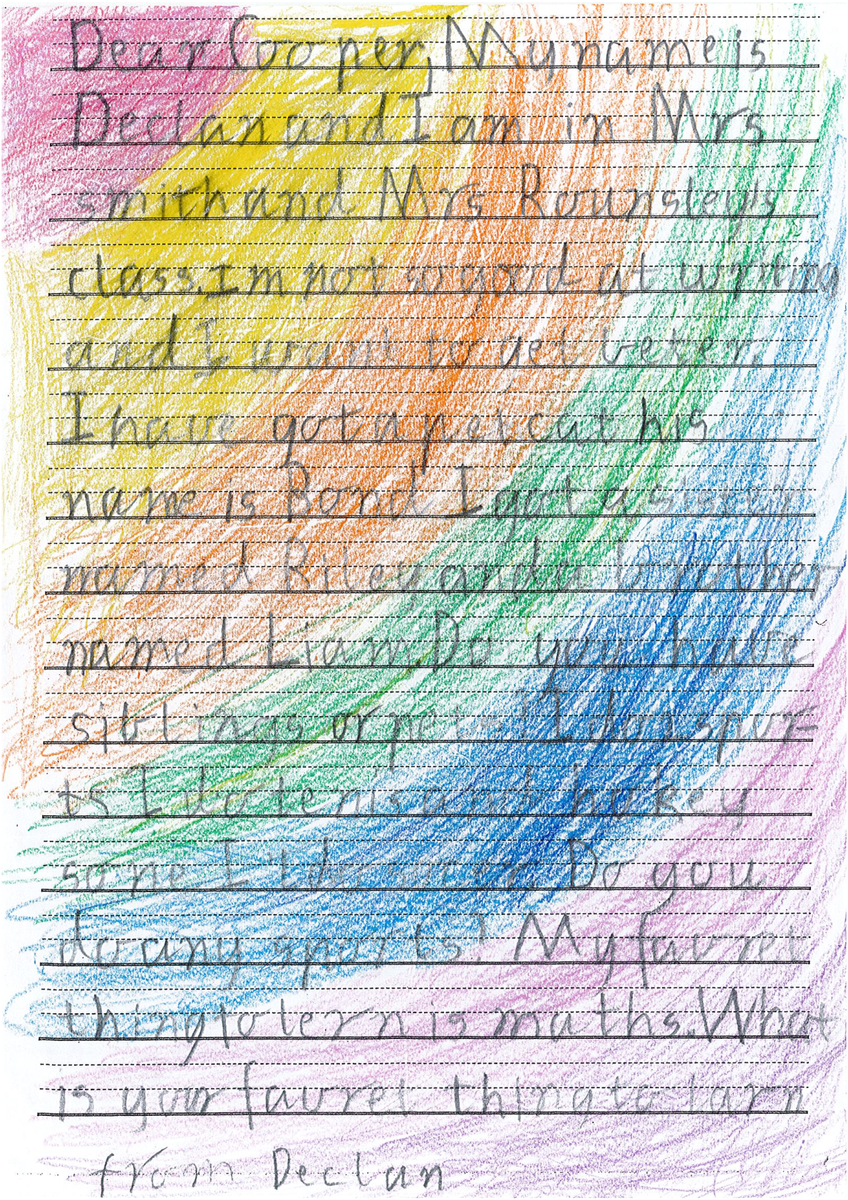 Dear Cooper, My name is
Declan and I am in Mrs
smith and Mrs Rounsley's
class. I'm not so good at writing
and I want to get beter.
I have got a pet cat his
name is Bond I got a sister
named Riley and a brother
named Liam. Do you have
siblings or pets? I do spor-
ts I do tenis and hokey
Do you
do any sports? My favret
thing to lern is maths. What
is your favret thing to larn
from Declan